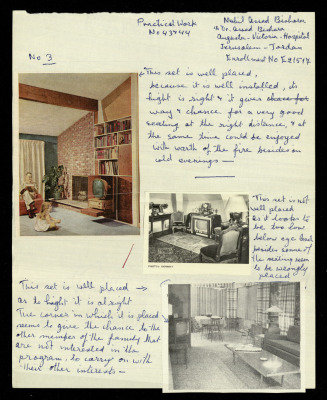 Practical Work
No 43 & 44
Nabil Assad Bishara
c/o Dr. Assad Bishara
Augusta-Victoria-Hospital
Jerusalem - Jordan
Enrollment No E21574
No 3
This set is well placed,
because it is well installed, its
hight is right & it gives
way & chance for a very good
seating at the right distance, & at
the same time could be enjoyed
with warth of the fire besides on
cold evenings —
This set is not
well placed
as it looks to
be too low
below eye level
besides some of
the seating seem
to be wrongly
placed
This set is well placed →
as to hight it is alright
The corner in which it is placed
seems to give the chance to the
other member of the family that
are not interested in the
program, to carry on with
their other interests —